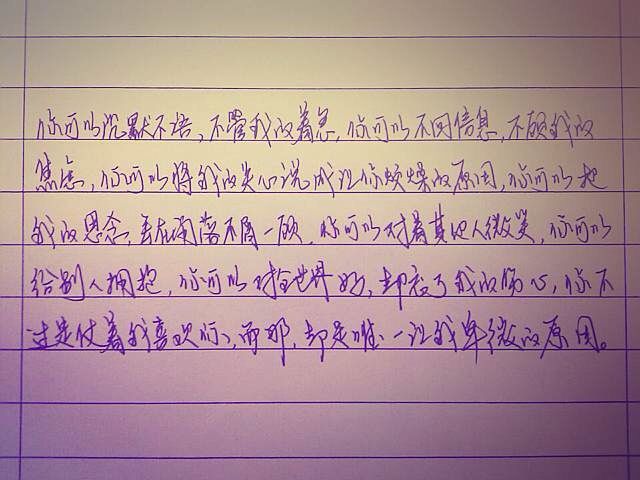 你可以沉默不语，不管我的着急，你可以不回信息，不顾我的
焦虑，你可以将我的关心说成让你烦燥的原因，你可以把
我的思念，丢在角落不屑一顾，你可以对着其他人微笑，你可以
给别人拥抱，你可以对全世界好，却忘了我的伤心，你不
过是仗着我喜欢你，而那，却是唯一让我卑微的原因。